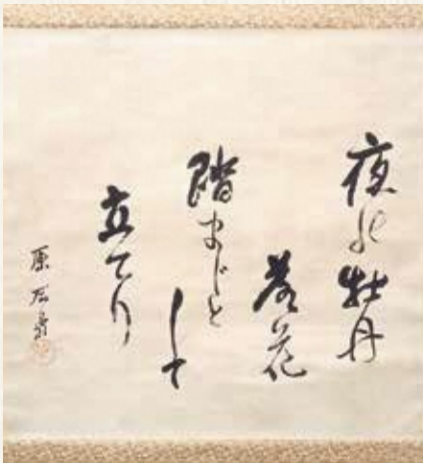 夜の牡丹
落花
踏まじと
して
立てり
原石鼎